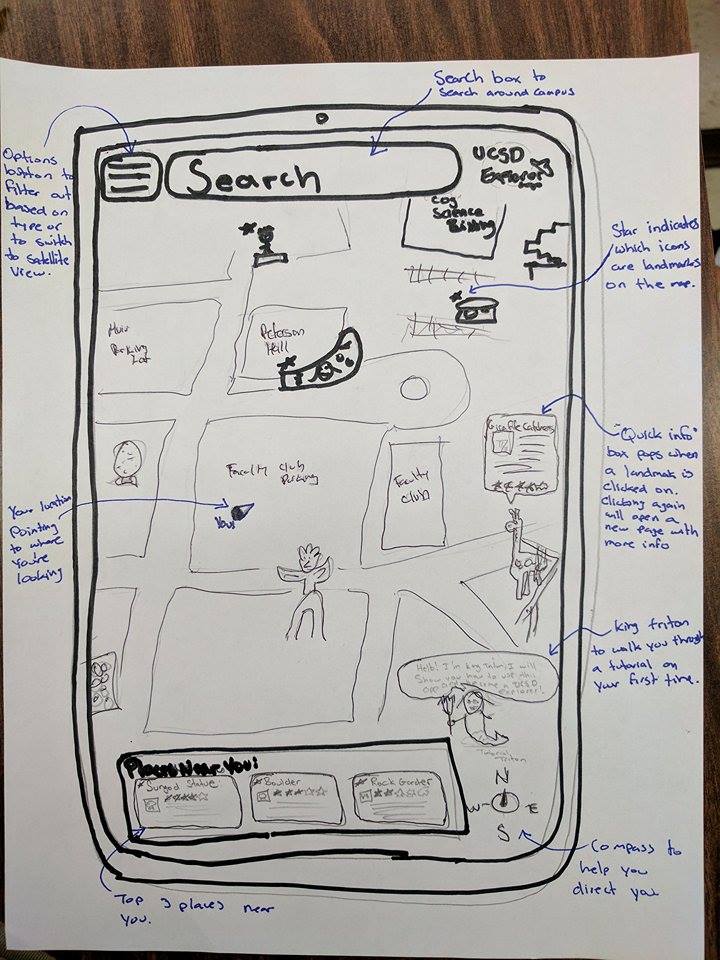 Search box to
search around campus
Options
button to
filter out
based on
type or
to switch
to satellite
view.
Search
UCSD
Explorer
Logo
Cog
Science
Building
Star indicates
which icons
are landmarks
on the map.
Muir
Parking
Lot
Peterson
Hall
Giraffe Catchers
"Quick info"
box pops when
a landmark is
clicked on.
Clicking again
will open a
new page with
more info
Faculty Club
Parking
Faculty
Club
Your location
pointing
to where
you're
looking
You!
King Triton
to walk you through
a tutorial on
your first time.
Hello! I'm King Triton, I will
show you how to use this
app and become a UCSD
Explorer!
Tutorial
Triton
Places Near You:
Sungod Statue
Boulder
Rock Garden
N
W
E
S
Compass to
help you
direct you
Top 3 places near
you.